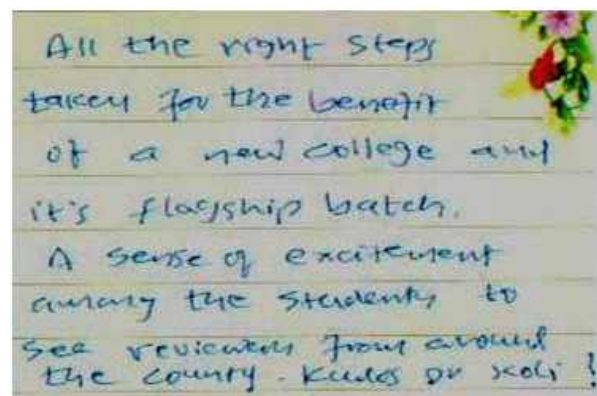 All the right steps
taken for the benefit
of a new college and
it's flagship batch.
A sense of excitement
among the students to
see reviewers from around
the county. Kudos Dr Koli !